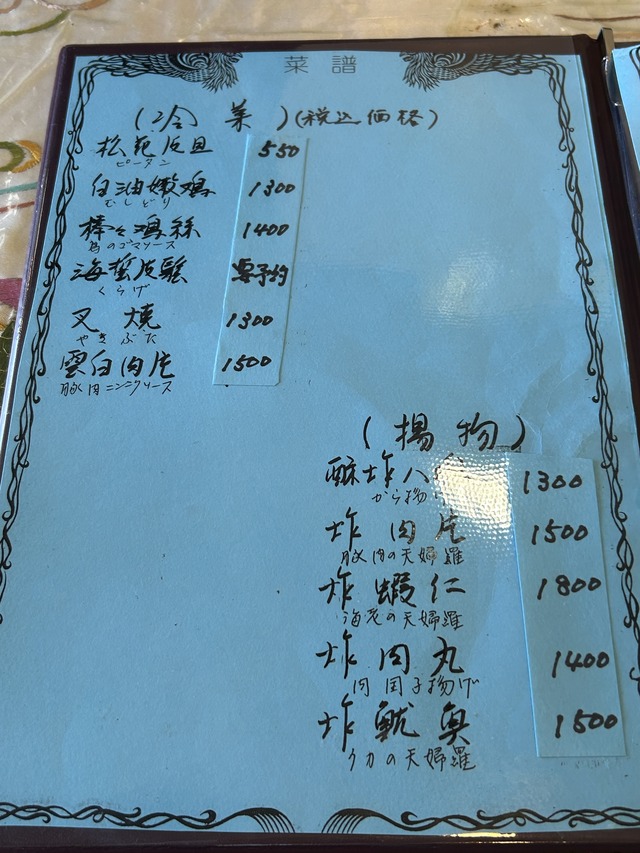 菜譜
(冷菜)(税込価格)
松花皮旦 550
ピータン
白油嫩鶏 1300
むしどり
棒々鶏絲 1400
鳥のゴマソース
海蜇皮 要予約
くらげ
叉焼 1300
やきぶた
雲白肉片 1500
豚肉ニンニクソース
(揚物)
酥炸八 1300
から揚げ
炸肉片 1500
豚肉の天婦羅
炸蝦仁 1800
海老の天婦羅
炸肉丸 1400
肉団子揚げ
炸魷魚 1500
イカの天婦羅